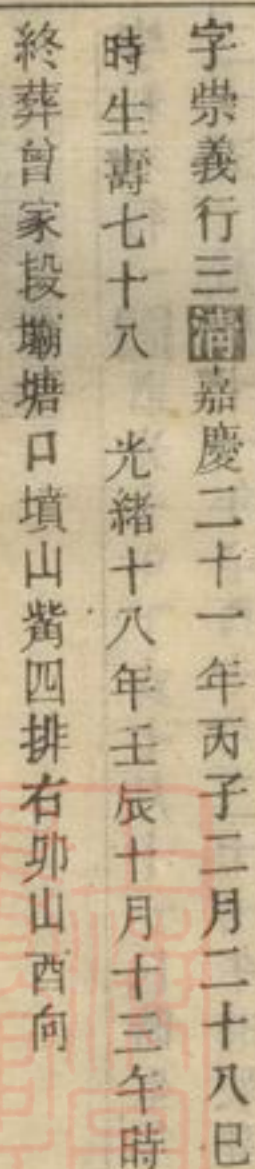 字崇義行三清嘉慶二十一年丙子二月二十八巳
時生壽七十八 光緒十八年壬辰十月十三午時
終葬曾家段塘口墳山觜四排右卯山酉向